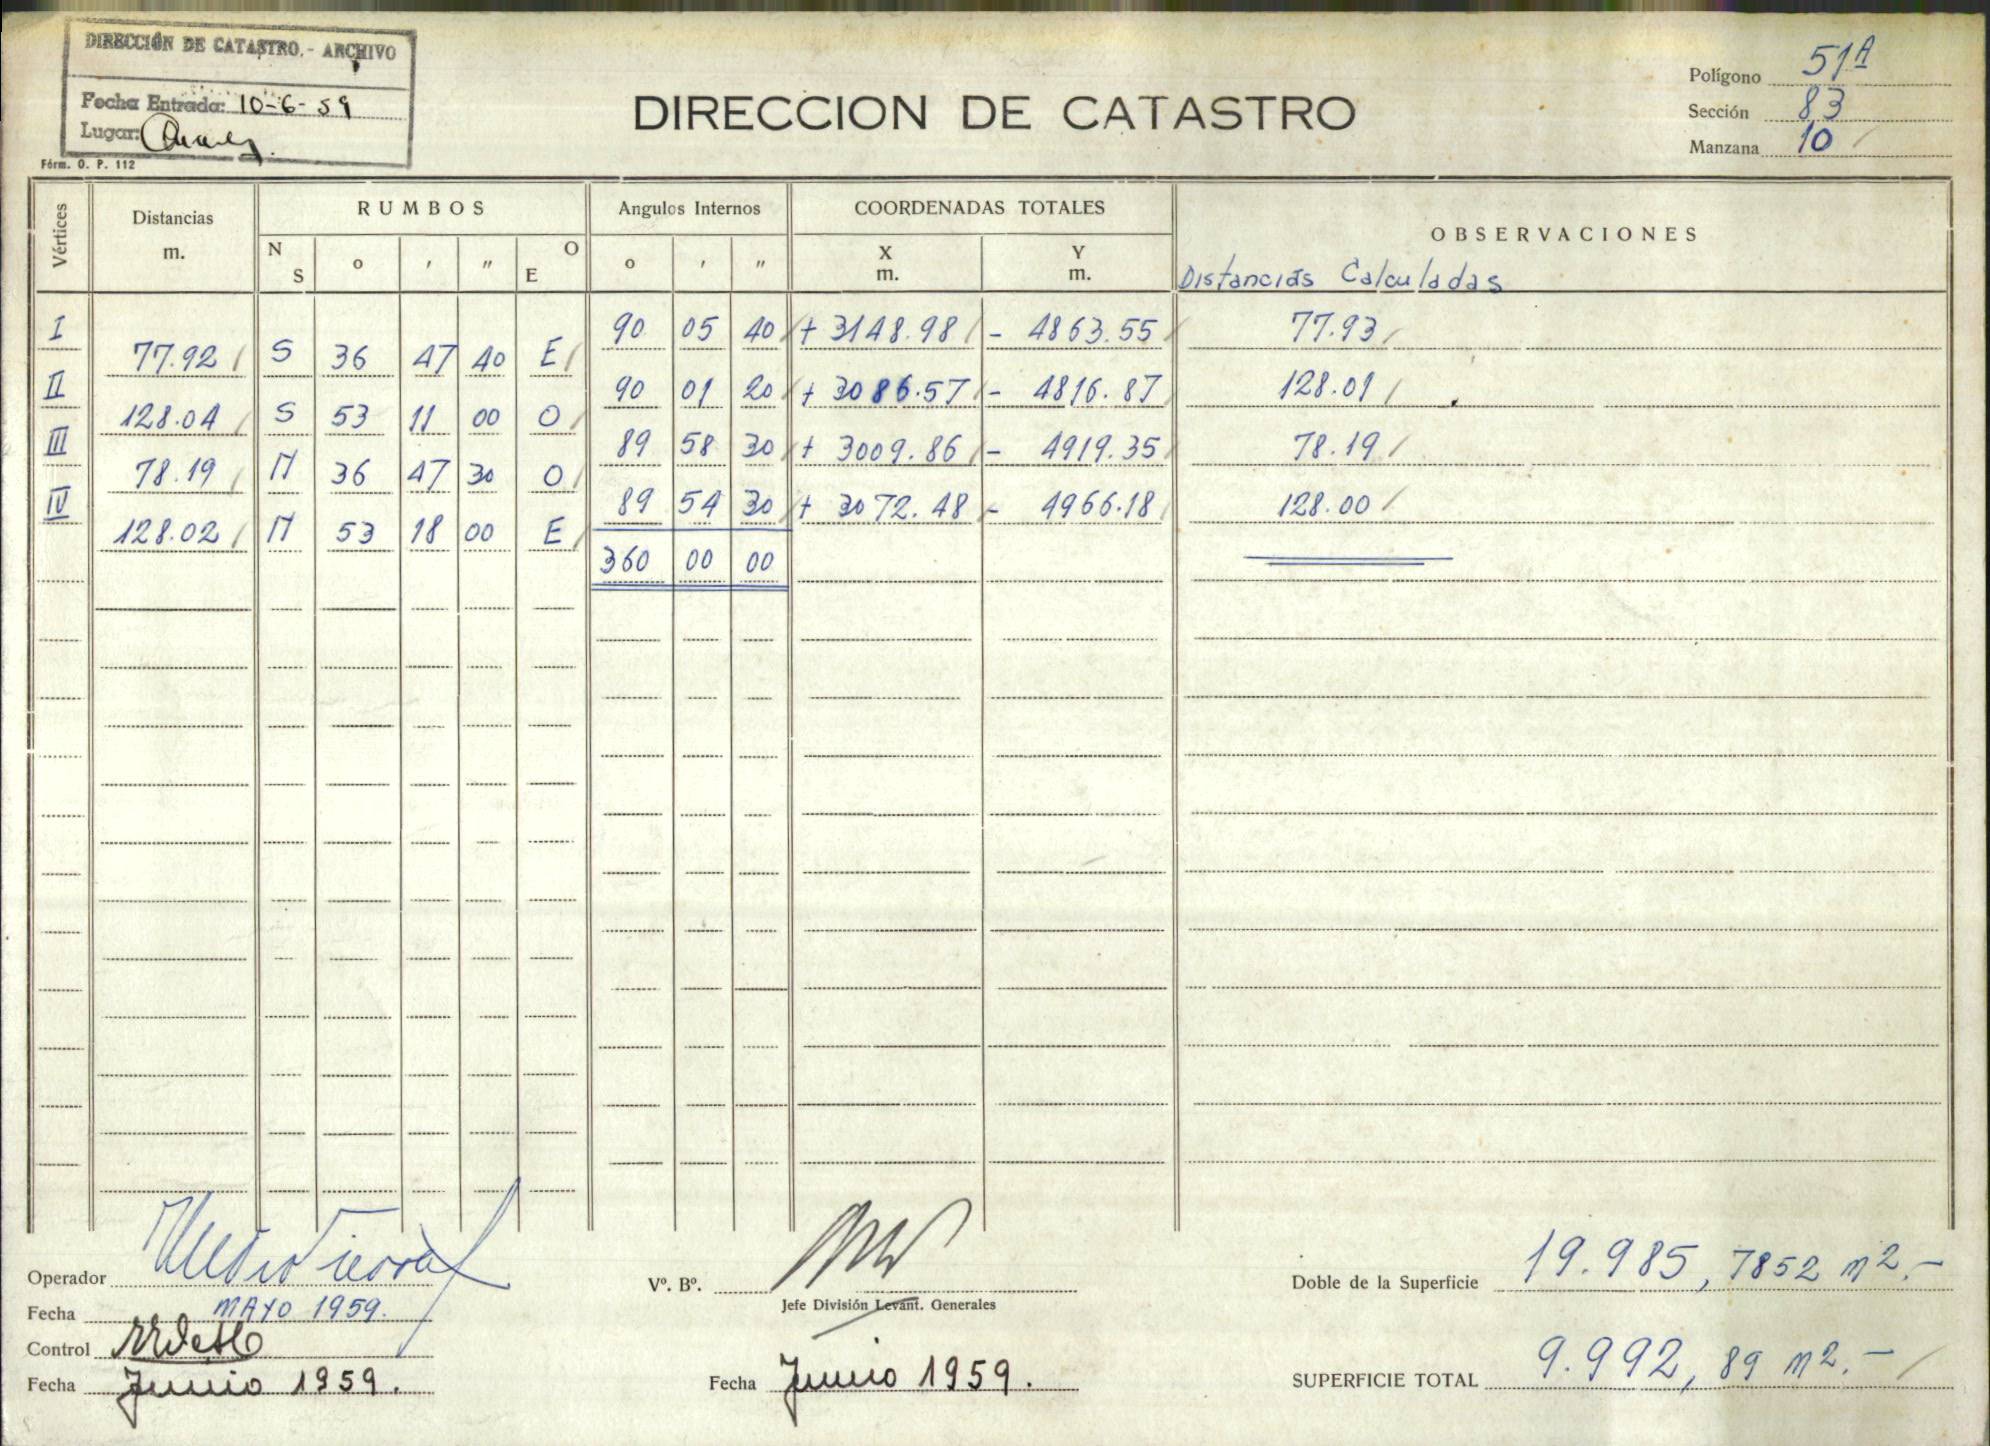 DIRECCIÓN DE CATASTRO.- ARCHIVO
Fecha Entrada: 10-6-59
Lugar:
Fórm. O. P. 112
DIRECCION DE CATASTRO
Polígono 51A
Sección 83
Manzana 10
Vértices
Distancias
m.
RUMBOS
N S o ' " O E
Angulos Internos
o ' "
COORDENADAS TOTALES
X
m.
Y
m.
OBSERVACIONES
Distancias Calculadas
I 90 05 40 + 3148.98 - 4863.55 77.93
77.92 S 36 47 40 E
II 90 01 20 + 3086.57 - 4816.87 128.01
128.04 S 53 11 00 O
III 89 58 30 + 3009.86 - 4919.35 78.19
78.19 N 36 47 30 O
IV 89 54 30 + 3072.48 - 4966.18 128.00
128.02 N 53 18 00 E
360 00 00
Operador
Fecha MAYO 1959.
Control
Fecha Junio 1959.
Vº. Bº.
Jefe División Levant. Generales
Fecha Junio 1959.
Doble de la Superficie 19.985,7852 m2.-
SUPERFICIE TOTAL 9.992,89 m2.-